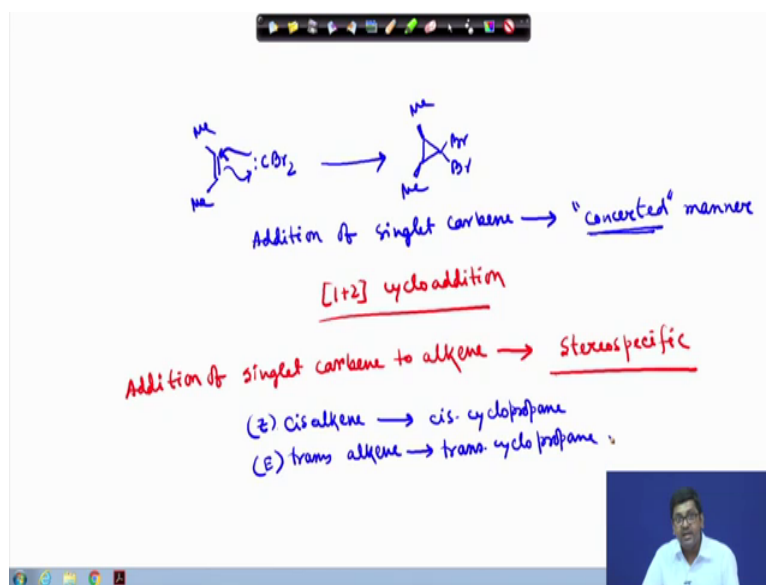 Me
Me
:CBr2
Me
Br
Br
Me
Addition of singlet carbene → "concerted" manner
[1+2] cycloaddition
Addition of singlet carbene to alkene → Stereospecific
(Z) cis alkene → cis. cyclopropane
(E) trans alkene → trans. cyclopropane